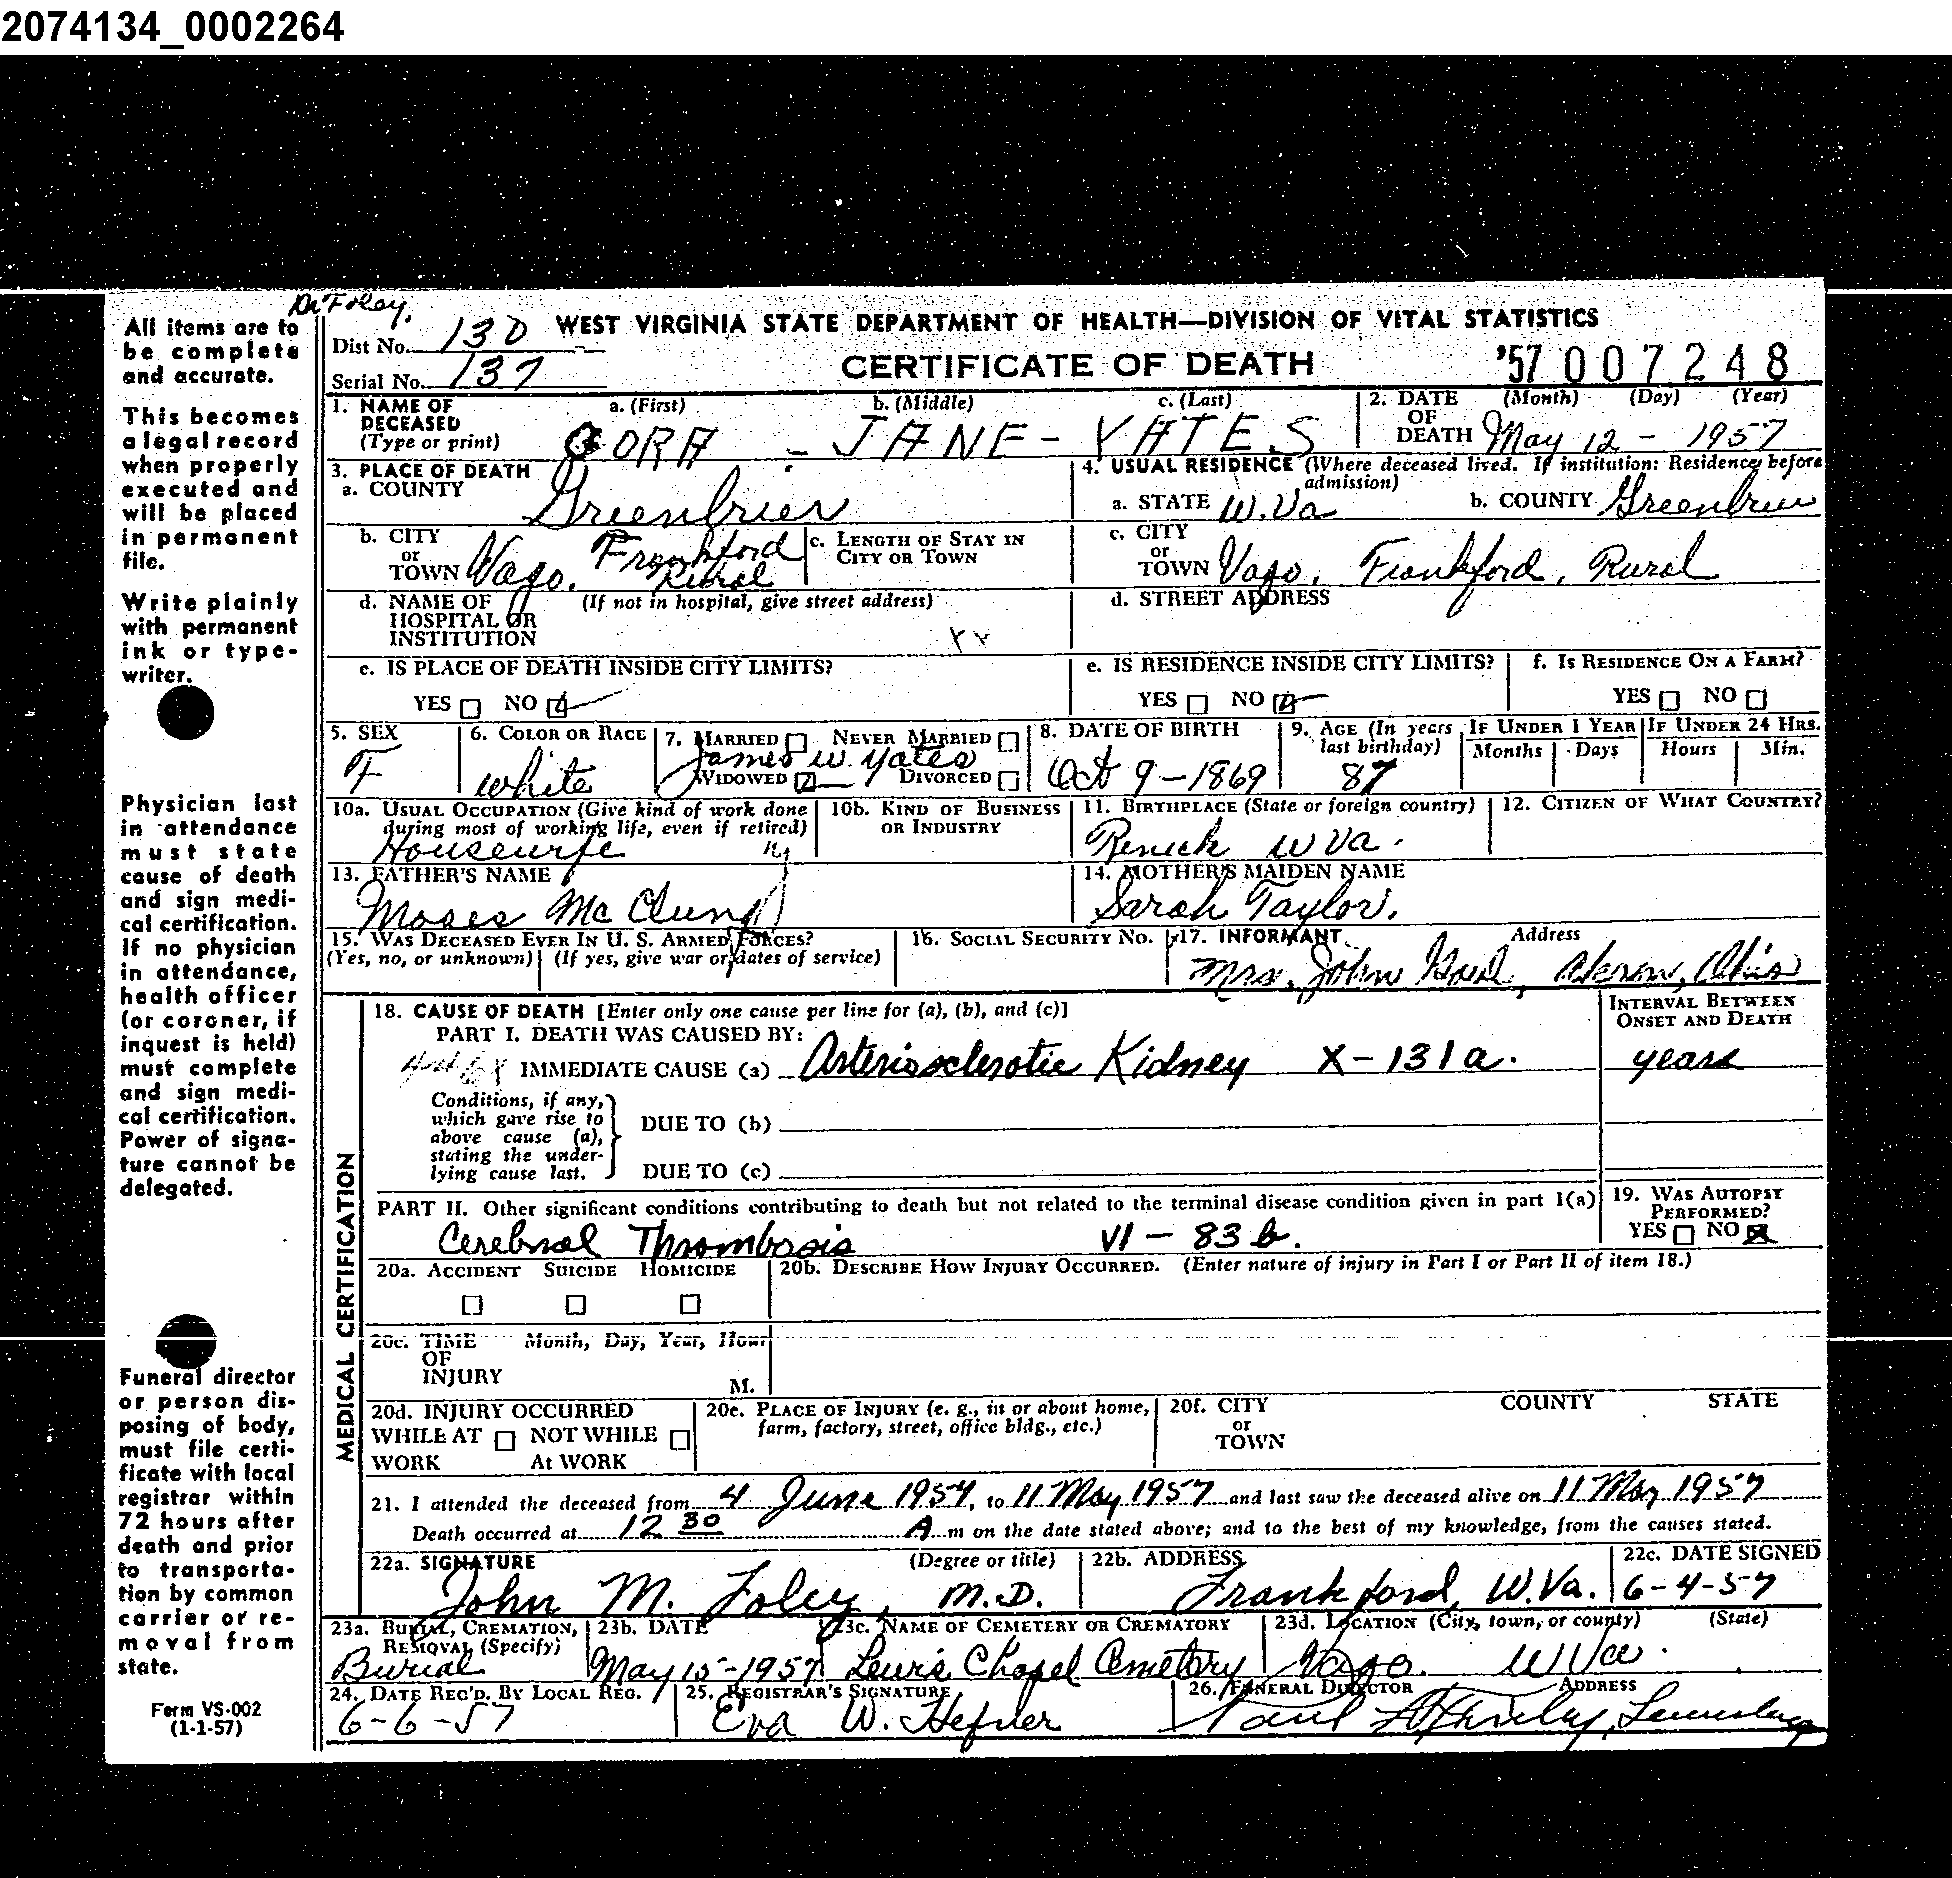 2074134_0002264
Dr Foley.
All items are to
be complete
and accurate.
This becomes
a legal record
when properly
executed and
will be placed
in permanent
file.
Write plainly
with permanent
ink or type-
writer.
Physician last
in attendance
must state
cause of death
and sign medi-
cal certification.
If no physician
in attendance,
health officer
(or coroner, if
inquest is held)
must complete
and sign medi-
cal certification.
Power of signa-
ture cannot be
delegated.
Funeral director
or person dis-
posing of body,
must file certi-
ficate with local
registrar within
72 hours after
death and prior
to transporta-
tion by common
carrier or re-
moval from
state.
Form VS-002
(1-1-57)
Dist No. 130 WEST VIRGINIA STATE DEPARTMENT OF HEALTH—DIVISION OF VITAL STATISTICS
Serial No. 137 CERTIFICATE OF DEATH '57 007248
1. NAME OF DECEASED (Type or print) a. (First) b. (Middle) c. (Last) 2. DATE OF DEATH (Month) (Day) (Year)
CORA - JANE - YATES May 12 - 1957
3. PLACE OF DEATH 4. USUAL RESIDENCE (Where deceased lived. If institution: Residence before admission)
a. COUNTY Greenbrier a. STATE W.Va b. COUNTY Greenbrier
b. CITY or TOWN Vago. Frankford Rural c. LENGTH OF STAY IN CITY OR TOWN c. CITY or TOWN Vago, Frankford, Rural
d. NAME OF HOSPITAL OR INSTITUTION (If not in hospital, give street address) xx d. STREET ADDRESS
e. IS PLACE OF DEATH INSIDE CITY LIMITS? e. IS RESIDENCE INSIDE CITY LIMITS? f. IS RESIDENCE ON A FARM?
YES NO YES NO YES NO
5. SEX 6. COLOR OR RACE 7. MARRIED NEVER MARRIED 8. DATE OF BIRTH 9. AGE (In years last birthday) IF UNDER 1 YEAR IF UNDER 24 HRS.
Months Days Hours Min.
James W. Yates
F white WIDOWED DIVORCED Oct 9-1869 87
10a. USUAL OCCUPATION (Give kind of work done during most of working life, even if retired) 10b. KIND OF BUSINESS OR INDUSTRY 11. BIRTHPLACE (State or foreign country) 12. CITIZEN OF WHAT COUNTRY?
Housewife Renick W Va.
13. FATHER'S NAME 14. MOTHER'S MAIDEN NAME
Moses McClung Sarah Taylor.
15. WAS DECEASED EVER IN U. S. ARMED FORCES? 16. SOCIAL SECURITY No. 17. INFORMANT Address
(Yes, no, or unknown) (If yes, give war or dates of service) Mrs. John Akron, Ohio
18. CAUSE OF DEATH [Enter only one cause per line for (a), (b), and (c)] INTERVAL BETWEEN ONSET AND DEATH
PART I. DEATH WAS CAUSED BY:
IMMEDIATE CAUSE (a) Arteriosclerotic Kidney X-131a. years
Conditions, if any, which gave rise to above cause (a), stating the underlying cause last.
DUE TO (b)
DUE TO (c)
PART II. Other significant conditions contributing to death but not related to the terminal disease condition given in part 1(a) 19. WAS AUTOPSY PERFORMED?
Cerebral Thrombosis VI - 83 b. YES NO
20a. ACCIDENT SUICIDE HOMICIDE 20b. DESCRIBE HOW INJURY OCCURRED. (Enter nature of injury in Part I or Part II of item 18.)
20c. TIME OF INJURY Month, Day, Year, Hour M.
20d. INJURY OCCURRED 20e. PLACE OF INJURY (e. g., in or about home, farm, factory, street, office bldg., etc.) 20f. CITY or TOWN COUNTY STATE
WHILE AT WORK NOT WHILE At WORK
21. I attended the deceased from 4 June 1954, to 11 May 1957 and last saw the deceased alive on 11 May 1957
Death occurred at 12 30 A m on the date stated above; and to the best of my knowledge, from the causes stated.
22a. SIGNATURE (Degree or title) 22b. ADDRESS 22c. DATE SIGNED
John M. Foley, M.D. Frankford, W.Va. 6-4-57
23a. BURIAL, CREMATION, REMOVAL (Specify) 23b. DATE 23c. NAME OF CEMETERY OR CREMATORY 23d. LOCATION (City, town, or county) (State)
Burial May 15-1957 Lewis Chapel Cemetery Vago. W Va.
24. DATE REC'D. BY LOCAL REG. 25. REGISTRAR'S SIGNATURE 26. FUNERAL DIRECTOR ADDRESS
6-6-57 Eva W. Hefner Paul
MEDICAL CERTIFICATION